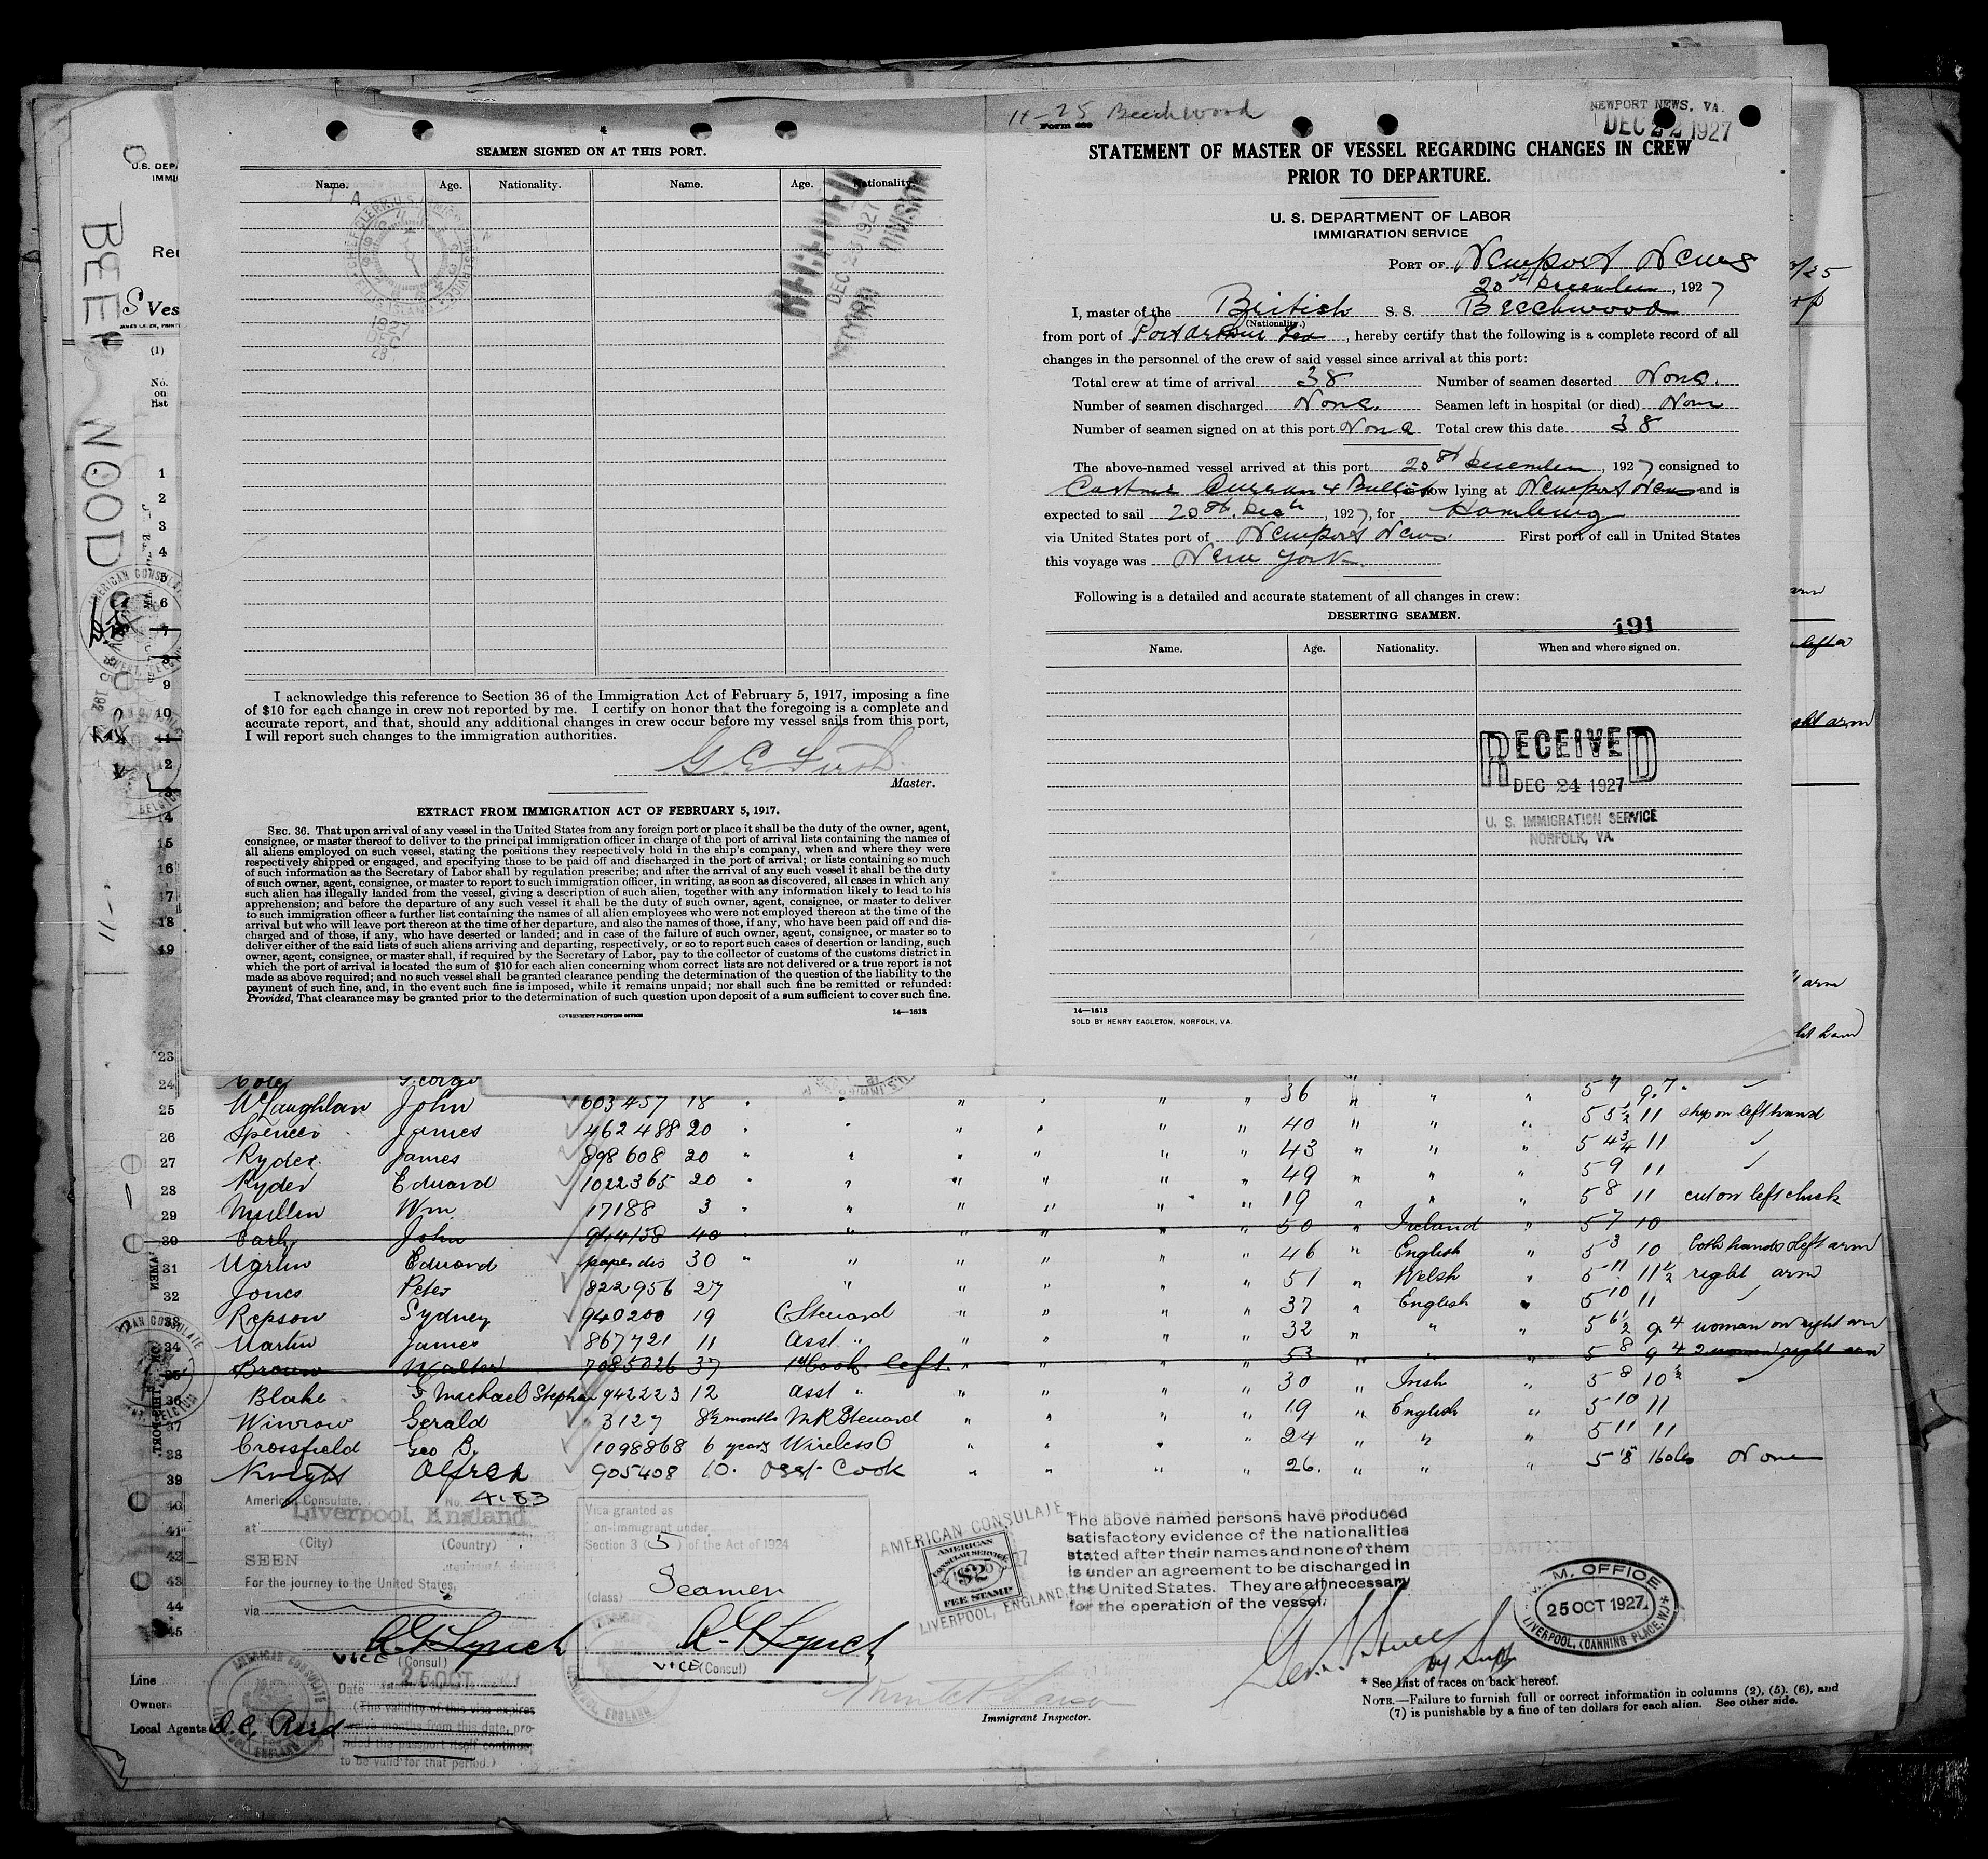 4
SEAMEN SIGNED ON AT THIS PORT.
Name. Age. Nationality. Name. Age. Nationality.
DEC 23 1927
DIVISION
I acknowledge this reference to Section 36 of the Immigration Act of February 5, 1917, imposing a fine
of $10 for each change in crew not reported by me. I certify on honor that the foregoing is a complete and
accurate report, and that, should any additional changes in crew occur before my vessel sails from this port,
I will report such changes to the immigration authorities.
Master.
EXTRACT FROM IMMIGRATION ACT OF FEBRUARY 5, 1917.
SEC. 36. That upon arrival of any vessel in the United States from any foreign port or place it shall be the duty of the owner, agent,
consignee, or master thereof to deliver to the principal immigration officer in charge of the port of arrival lists containing the names of
all aliens employed on such vessel, stating the positions they respectively hold in the ship's company, when and where they were
respectively shipped or engaged, and specifying those to be paid off and discharged in the port of arrival; or lists containing so much
of such information as the Secretary of Labor shall by regulation prescribe; and after the arrival of any such vessel it shall be the duty
of such owner, agent, consignee, or master to report to such immigration officer, in writing, as soon as discovered, all cases in which any
such alien has illegally landed from the vessel, giving a description of such alien, together with any information likely to lead to his
apprehension; and before the departure of any such vessel it shall be the duty of such owner, agent, consignee, or master to deliver
to such immigration officer a further list containing the names of all alien employees who were not employed thereon at the time of the
arrival but who will leave port thereon at the time of her departure, and also the names of those, if any, who have been paid off and dis-
charged and of those, if any, who have deserted or landed; and in case of the failure of such owner, agent, consignee, or master so to
deliver either of the said lists of such aliens arriving and departing, respectively, or so to report such cases of desertion or landing, such
owner, agent, consignee, or master shall, if required by the Secretary of Labor, pay to the collector of customs of the customs district in
which the port of arrival is located the sum of $10 for each alien concerning whom correct lists are not delivered or a true report is not
made as above required; and no such vessel shall be granted clearance pending the determination of the question of the liability to the
payment of such fine, and, in the event such fine is imposed, while it remains unpaid; nor shall such fine be remitted or refunded:
Provided, That clearance may be granted prior to the determination of such question upon deposit of a sum sufficient to cover such fine.
GOVERNMENT PRINTING OFFICE 14—1613
11-25 Beechwood
NEWPORT NEWS, VA.
DEC 22 1927
STATEMENT OF MASTER OF VESSEL REGARDING CHANGES IN CREW
PRIOR TO DEPARTURE.
U. S. DEPARTMENT OF LABOR
IMMIGRATION SERVICE
PORT OF Newport News
20th December, 1927
I, master of the British S. S. Beechwood
(Nationality.)
from port of Port Arthur Tex, hereby certify that the following is a complete record of all
changes in the personnel of the crew of said vessel since arrival at this port:
Total crew at time of arrival 38 Number of seamen deserted None.
Number of seamen discharged None. Seamen left in hospital (or died) None
Number of seamen signed on at this port None Total crew this date 38
The above-named vessel arrived at this port 20th December, 1927 consigned to
Castner Curran & Bullitt now lying at Newport News and is
expected to sail 20th. Decth, 1927, for Hamburg
via United States port of Newport News. First port of call in United States
this voyage was New York.
Following is a detailed and accurate statement of all changes in crew:
DESERTING SEAMEN.
191
Name. Age. Nationality. When and where signed on.
RECEIVED
DEC 24 1927
U. S. IMMIGRATION SERVICE
NORFOLK, VA.
14—1613
SOLD BY HENRY EAGLETON, NORFOLK, VA.
BEECHWOOD
(1)
No. on list
24 Cole George 36 " " " 5 7 9.7
25 McLaughlan John 603457 18 " " " " " " 40 " " " 5 5½ 11 ship on left hand
26 Spencer James 462488 20 " " " " " " 43 " " " 5 4¾ 11
27 Ryder James 898608 20 " " " " " " 49 " " " 5 9 11
28 Ryder Edward 1022365 20 " " " " " " 19 " " " 5 8 11 cut on left cheek
29 Mullen Wm. 17188 3
30 Early John 944158 40 " 50 " Ireland " 5 7 10
31 Martin Edward papers dis 30 " " " " " 46 " English " 5 3 10 both hands & left arm
32 Jones Peter 822956 27 " " " " " 51 " Welsh " 5 11 11½ right arm
33 Repson Sydney 940200 19 C Steward " " " " 37 " English " 5 10 11
34 Martin James 867721 11 Asst " " " " " 32 " " " 5 6½ 9.4 woman on right arm
35 Brown Walter 7085026 37 1st Cook left " " " " 53 " " " 5 8 9 4 2 women right arm
36 Blake G Michael Stephen 942223 12 asst " " " " " 30 " Irish " 5 8 10½
37 Winrow Gerald 3127 8½ months M.R. Steward " " " " 19 " English " 5 10 11
38 Crossfield Geo B. 1098868 6 years Wireless O " " " " 24 " " " 5 11 11
39 Knight Alfred 905408 10. Asst Cook " " " " 26. " " " 5 8 160lbs None
American Consulate. No. 4183
at Liverpool, England
(City) (Country)
SEEN
For the journey to the United States,
via
A. G. Lynch
VICE (Consul)
Date 25 OCT
(The validity of this visa expires
twelve months from this date, pro-
vided the passport itself continues
to be valid for that period.)
Visa granted as
non-immigrant under
Section 3 (5) of the Act of 1924
(class) Seamen
A. G. Lynch
VICE (Consul)
AMERICAN CONSULATE
LIVERPOOL, ENGLAND
AMERICAN CONSULAR SERVICE
$2
FEE STAMP
The above named persons have produced
satisfactory evidence of the nationalities
stated after their names and none of them
is under an agreement to be discharged in
the United States. They are all necessary
for the operation of the vessel.
M. M. OFFICE
25 OCT 1927
LIVERPOOL, (CANNING PLACE, W.)
Immigrant Inspector.
Line
Owners
Local Agents
* See List of races on back hereof.
NOTE.—Failure to furnish full or correct information in columns (2), (5), (6), and
(7) is punishable by a fine of ten dollars for each alien. See other side.